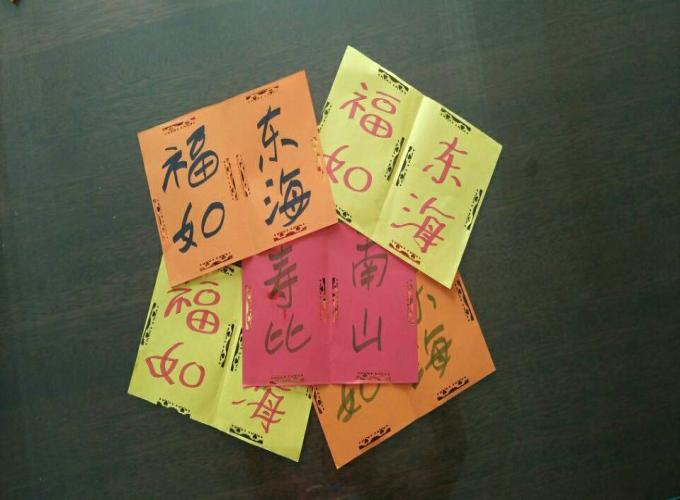 福如
东海
福如
东海
寿比
南山
福如
海
如
海